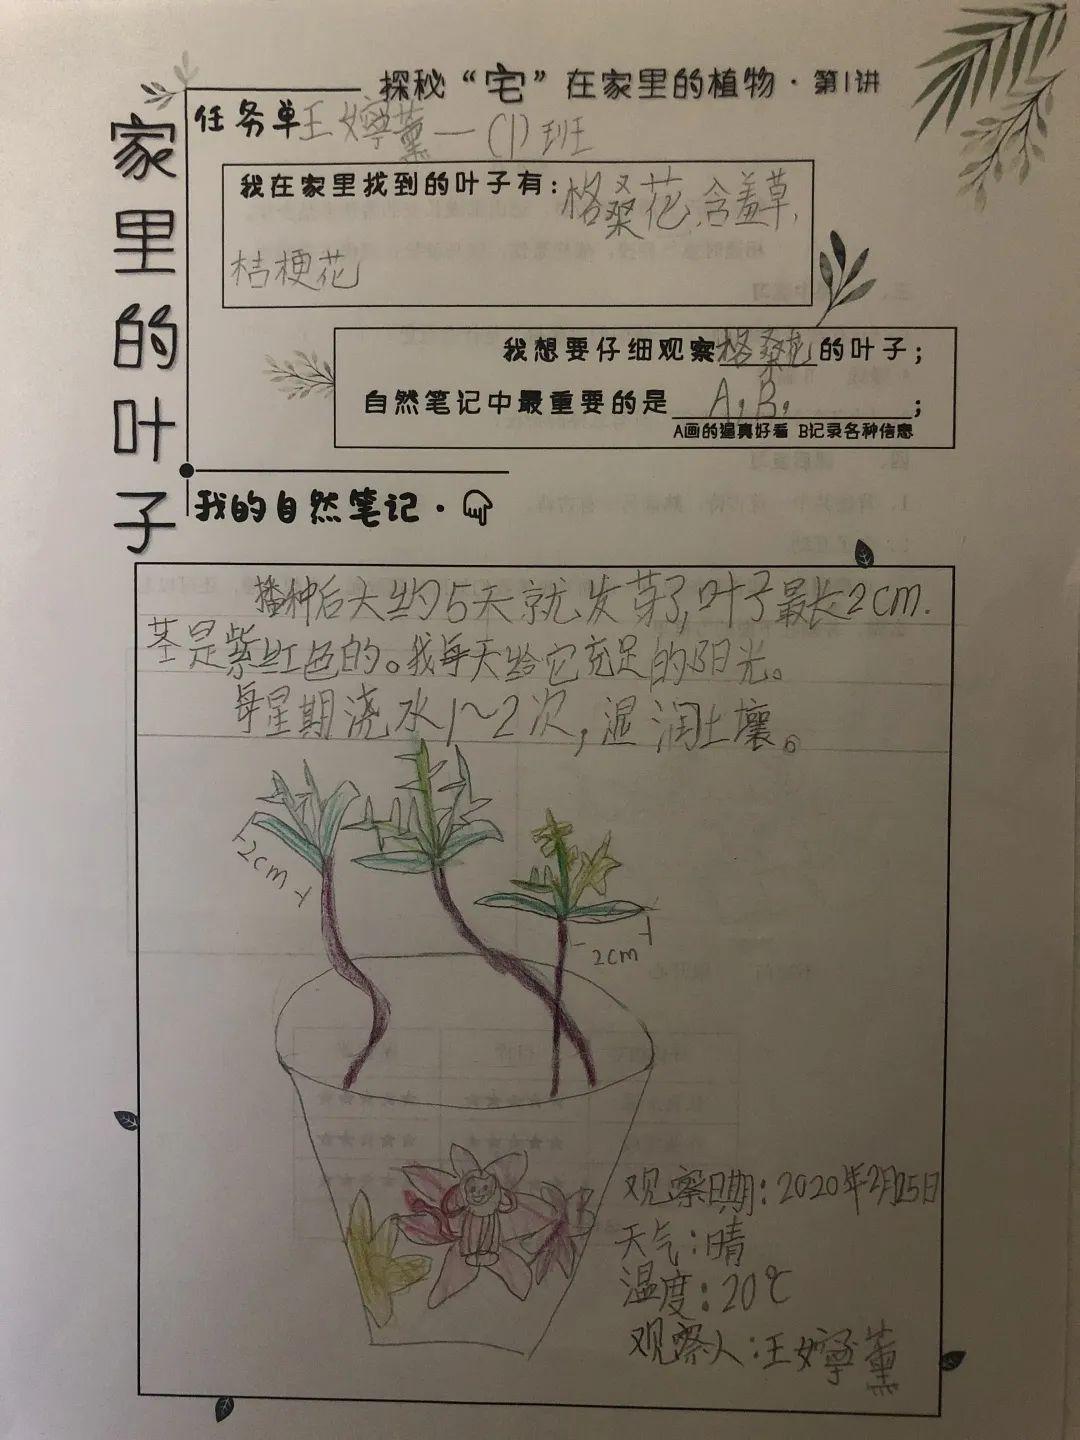 探秘“宅”在家里的植物·第1讲
家里的叶子
任务单 王嬣薰 一(1)班
我在家里找到的叶子有:格桑花,含羞草,
桔梗花
我想要仔细观察格桑花的叶子;
自然笔记中最重要的是 A,B, ;
A画的逼真好看 B记录各种信息
我的自然笔记·
播种后大约5天就发芽了,叶子最长2cm.
茎是紫红色的。我每天给它充足的阳光。
每星期浇水1~2次,湿润土壤。
2cm
2cm
观察日期:2020年2月25日
天气:晴
温度:20℃
观察人:王嬣薰